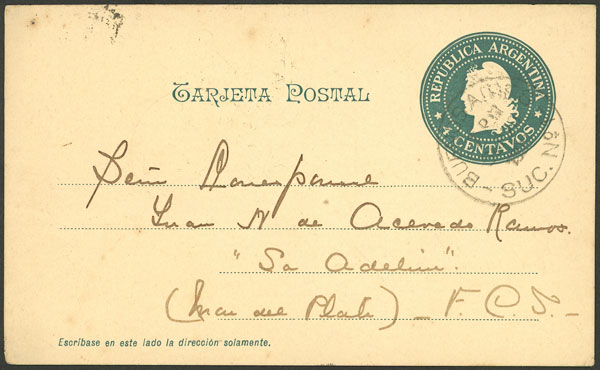 REPÚBLICA ARGENTINA
4 CENTAVOS
TARJETA POSTAL
BU
SUC. Nº
Señor
Juan N de Acevedo Ramos.
"La Adelina".
(Mar del Plata) - F.C.S. -
Escríbase en este lado la dirección solamente.